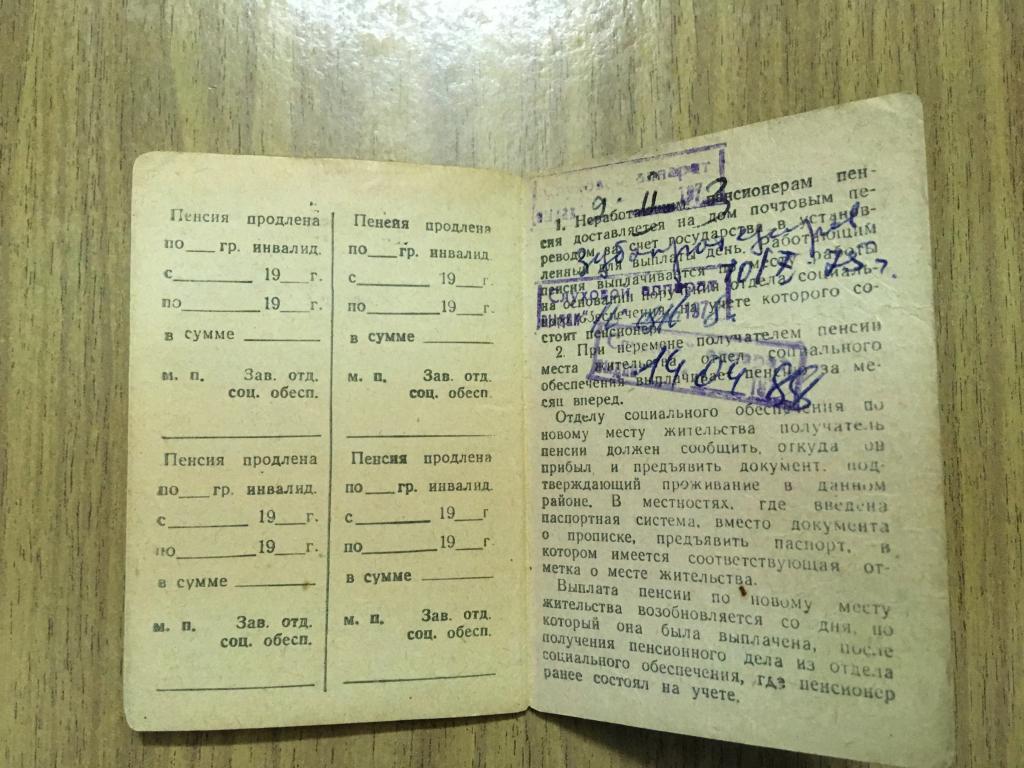 Пенсия продлена
по___ гр. инвалид.
с________ 19___г.
по________ 19___г.
в сумме ________
м. п. Зав. отд.
соц. обесп.
Пенсия продлена
по___гр. инвалид.
с________ 19___г.
по________19___г.
в сумме ________
м. п. Зав. отд.
соц. обесп.
Пенсия продлена
по___гр. инвалид.
с________ 19___г.
по________19___г.
в сумме ________
м. п. Зав. отд.
соц. обесп.
Пенсия продлена
по___гр. инвалид.
с________ 19___г
по________19___г.
в сумме ________
м. п. Зав. отд.
соц. обесп.
1. Неработающим пенсионерам пен-
сия доставляется на дом почтовым пе-
реводом за счет государства в установ-
ленный для выплаты день. Работающим
пенсия выплачивается по месту работы
на основании поручения отдела социаль-
обеспечения, на учете которого со-
стоит пенсионер.
2. При перемене получателем пенсии
места жительства отдел социального
обеспечения выплачивает пенсию за ме-
сяц вперед.
Отделу социального обеспечения по
новому месту жительства получатель
пенсии должен сообщить, откуда он
прибыл и предъявить документ, под-
тверждающий проживание в данном
районе. В местностях, где введена
паспортная система, вместо документа
о прописке, предъявить паспорт, в
котором имеется соответствующая от-
метка о месте жительства.
Выплата пенсии по новому месту
жительства возобновляется со дня, по
который она была выплачена, после
получения пенсионного дела из отдела
социального обеспечения, где пенсионер
ранее состоял на учете.
аппарат
197
Слуховой аппарат
197
14 04 88